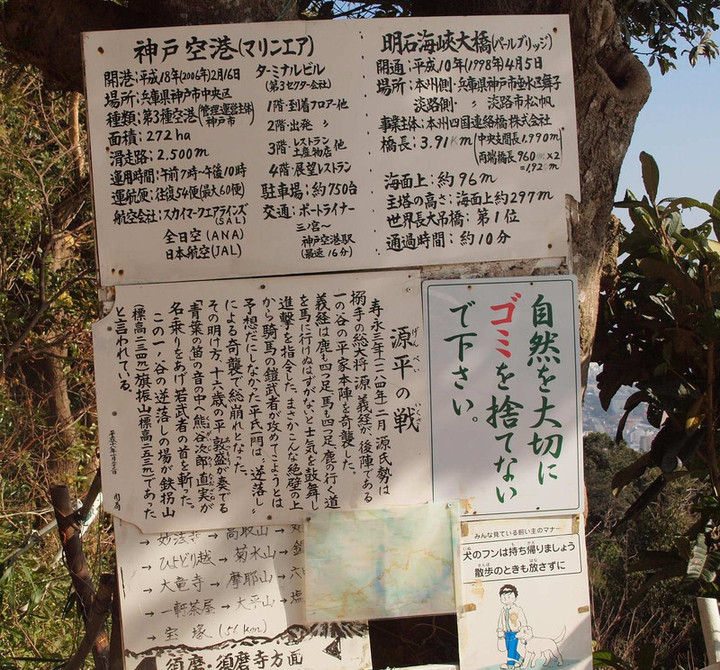 神戸空港(マリンエア)
開港:平成18年(2006年)2月16日
場所:兵庫県神戸市中央区
種類:第3種空港(管理・運営主体 神戸市)
面積:272ha
滑走路:2.500m
運用時間:午前7時~午後10時
運航便:往復54便(最大60便)
航空会社:スカイマークエアラインズ(SAL)
全日空(ANA)
日本航空(JAL)
ターミナルビル
(第3セクター会社)
1階・到着フロアー・他
2階・出発 〃
3階・レストラン 土産物店 他
4階・展望レストラン
駐車場:約750台
交通:ポートライナー
三宮~
神戸空港駅
(最速16分)
明石海峡大橋(パールブリッジ)
開通:平成10年(1998年)4月5日
場所:本州側・兵庫県神戸市垂水区舞子
淡路側・ 〃 淡路市松帆
事業主体:本州四国連絡橋株式会社
橋長:3.91Km(中央支間長1.990m
両端橋長960m×2
=1,920m)
海面上:約96m
主塔の高さ:海面上約297m
世界長大吊橋:第1位
通過時間:約10分
源平の戦
げんぺい いくさ
寿永三年(一一八四年)二月 源氏勢は
搦手の総大将 源 義経が、後陣である
一の谷の平家本陣を奇襲した。
義経は鹿も四つ足、馬も四つ足、鹿の行く道
を馬に行けぬはずがないと士気を鼓舞し
進撃を指令した。まさかこんな絶壁の上
から騎馬の鎧武者が攻めてこようとは
予想だにしなかった平氏一門は、逆落し
による奇襲で総崩れとなった。
その明け方、十六歳の平 敦盛が奏でる
「青葉の笛」の音の中へ熊谷次郎直実が
名乗りをあげ若武者の首を斬った。
この一ノ谷の逆落しの場が鉄拐山
(標高二三四m)旗振山(標高二五三m)であった
と言われている。
自然を大切に
ゴミを捨てない
で下さい。
→ 妙法寺 → 高取山
→ ひよどり越 → 菊水山 → 鍋
→ 大竜寺 → 摩耶山 → 六
→ 一軒茶屋 → 大平山 → 塩
→ 宝塚(56km)
須磨・須磨寺方面
みんな見ている飼い主のマナー
犬のフンは持ち帰りましょう
散歩のときも放さずに